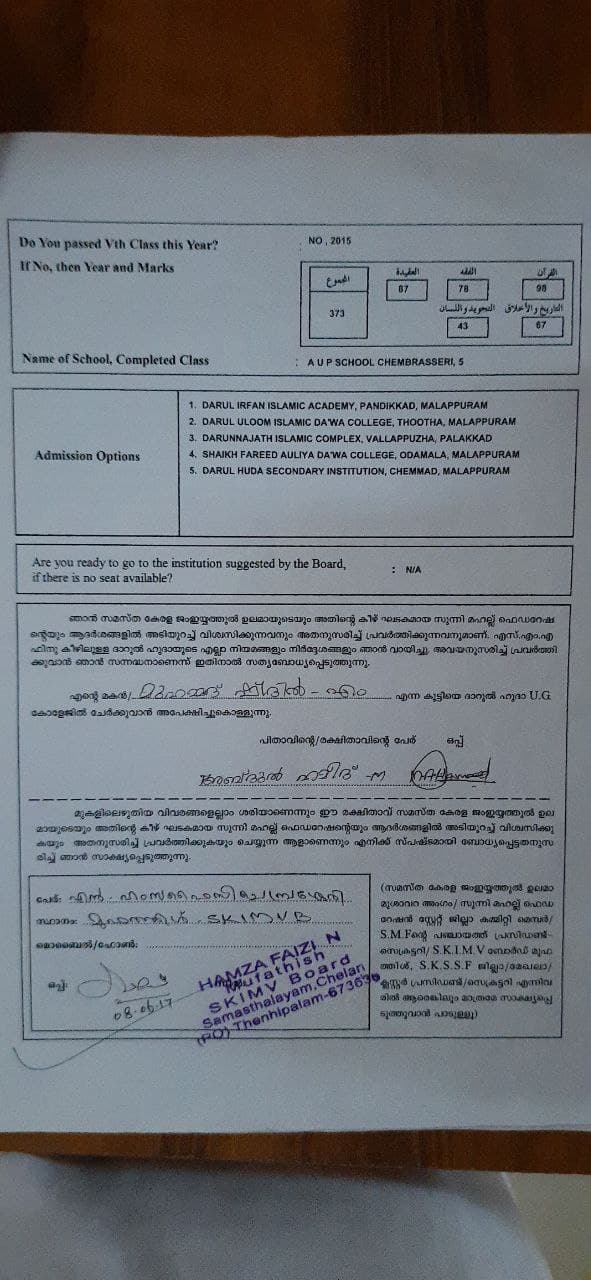 Do You passed Vth Class this Year? : NO , 2015
If No, then Year and Marks
المجموع العقيدة الفقه القرآن
373 87 78 98
التجويد واللسان التاريخ والأخلاق
43 67
Name of School, Completed Class : A U P SCHOOL CHEMBRASSERI, 5
Admission Options
1. DARUL IRFAN ISLAMIC ACADEMY, PANDIKKAD, MALAPPURAM
2. DARUL ULOOM ISLAMIC DA'WA COLLEGE, THOOTHA, MALAPPURAM
3. DARUNNAJATH ISLAMIC COMPLEX, VALLAPPUZHA, PALAKKAD
4. SHAIKH FAREED AULIYA DA'WA COLLEGE, ODAMALA, MALAPPURAM
5. DARUL HUDA SECONDARY INSTITUTION, CHEMMAD, MALAPPURAM
Are you ready to go to the institution suggested by the Board, : N/A
if there is no seat available?
ഞാൻ സമസ്ത കേരള ജംഇയ്യത്തുൽ ഉലമായുടെയും അതിന്റെ കീഴ് ഘടകമായ സുന്നി മഹല്ല് ഫെഡറേഷ
ന്റെയും ആദർശങ്ങളിൽ അടിയുറച്ച് വിശ്വസിക്കുന്നവനും അതനുസരിച്ച് പ്രവർത്തിക്കുന്നവനുമാണ്. എസ്.എം.എ
ഫിനു കീഴിലുള്ള ദാറുൽ ഹുദായുടെ എല്ലാ നിയമങ്ങളും നിർദ്ദേശങ്ങളും ഞാൻ വായിച്ചു. അവയനുസരിച്ച് പ്രവർത്തി
ക്കുവാൻ ഞാൻ സന്നദ്ധനാണെന്ന് ഇതിനാൽ സത്യബോധ്യപ്പെടുത്തുന്നു.
എന്റെ മകൻ/ മുഹമ്മദ് എന്ന കുട്ടിയെ ദാറുൽ ഹുദാ U.G
കോളേജിൽ ചേർക്കുവാൻ അപേക്ഷിച്ചുകൊള്ളുന്നു.
പിതാവിന്റെ/രക്ഷിതാവിന്റെ പേര് ഒപ്പ്
അബ്ദുൽ ഹമീദ് -M
മുകളിലെഴുതിയ വിവരങ്ങളെല്ലാം ശരിയാണെന്നും ഈ രക്ഷിതാവ് സമസ്ത കേരള ജംഇയ്യത്തുൽ ഉല
മായുടെയും അതിന്റെ കീഴ് ഘടകമായ സുന്നി മഹല്ല് ഫെഡറേഷന്റെയും ആദർശങ്ങളിൽ അടിയുറച്ച് വിശ്വസിക്കു
കയും അതനുസരിച്ച് പ്രവർത്തിക്കുകയും ചെയ്യുന്ന ആളാണെന്നും എനിക്ക് സ്പഷ്ടമായി ബോധ്യപ്പെട്ടതനുസ
രിച്ച് ഞാൻ സാക്ഷ്യപ്പെടുത്തുന്നു.
പേര്: എൻ. ഹംസ ഫൈസി
സ്ഥാനം: മുഫത്തിശ്. SKIMVB
മൊബൈൽ/ഫോൺ:
ഒപ്പ്:
08.06.17
HAMZA FAIZI. N
Mufathish
SKIMV Board
Samasthalayam,Chelari
(PO) Thenhipalam-673636
(സമസ്ത കേരള ജംഇയ്യത്തുൽ ഉലമാ
മുശാവറ അംഗം/ സുന്നി മഹല്ല് ഫെഡ
റേഷൻ സ്റ്റേറ്റ് ജില്ലാ കമ്മിറ്റി മെമ്പർ/
S.M.Fന്റെ പഞ്ചായത്ത് പ്രസിഡണ്ട്-
സെക്രട്ടറി/ S.K.I.M.V ബോർഡ് മുഫ
ത്തിശ്, S.K.S.S.F ജില്ലാ/മേഖലാ/
ക്ലസ്റ്റർ പ്രസിഡണ്ട്/സെക്രട്ടറി എന്നിവ
രിൽ ആരെങ്കിലും മാത്രമേ സാക്ഷ്യപ്പെ
ടുത്തുവാൻ പാടുള്ളൂ)